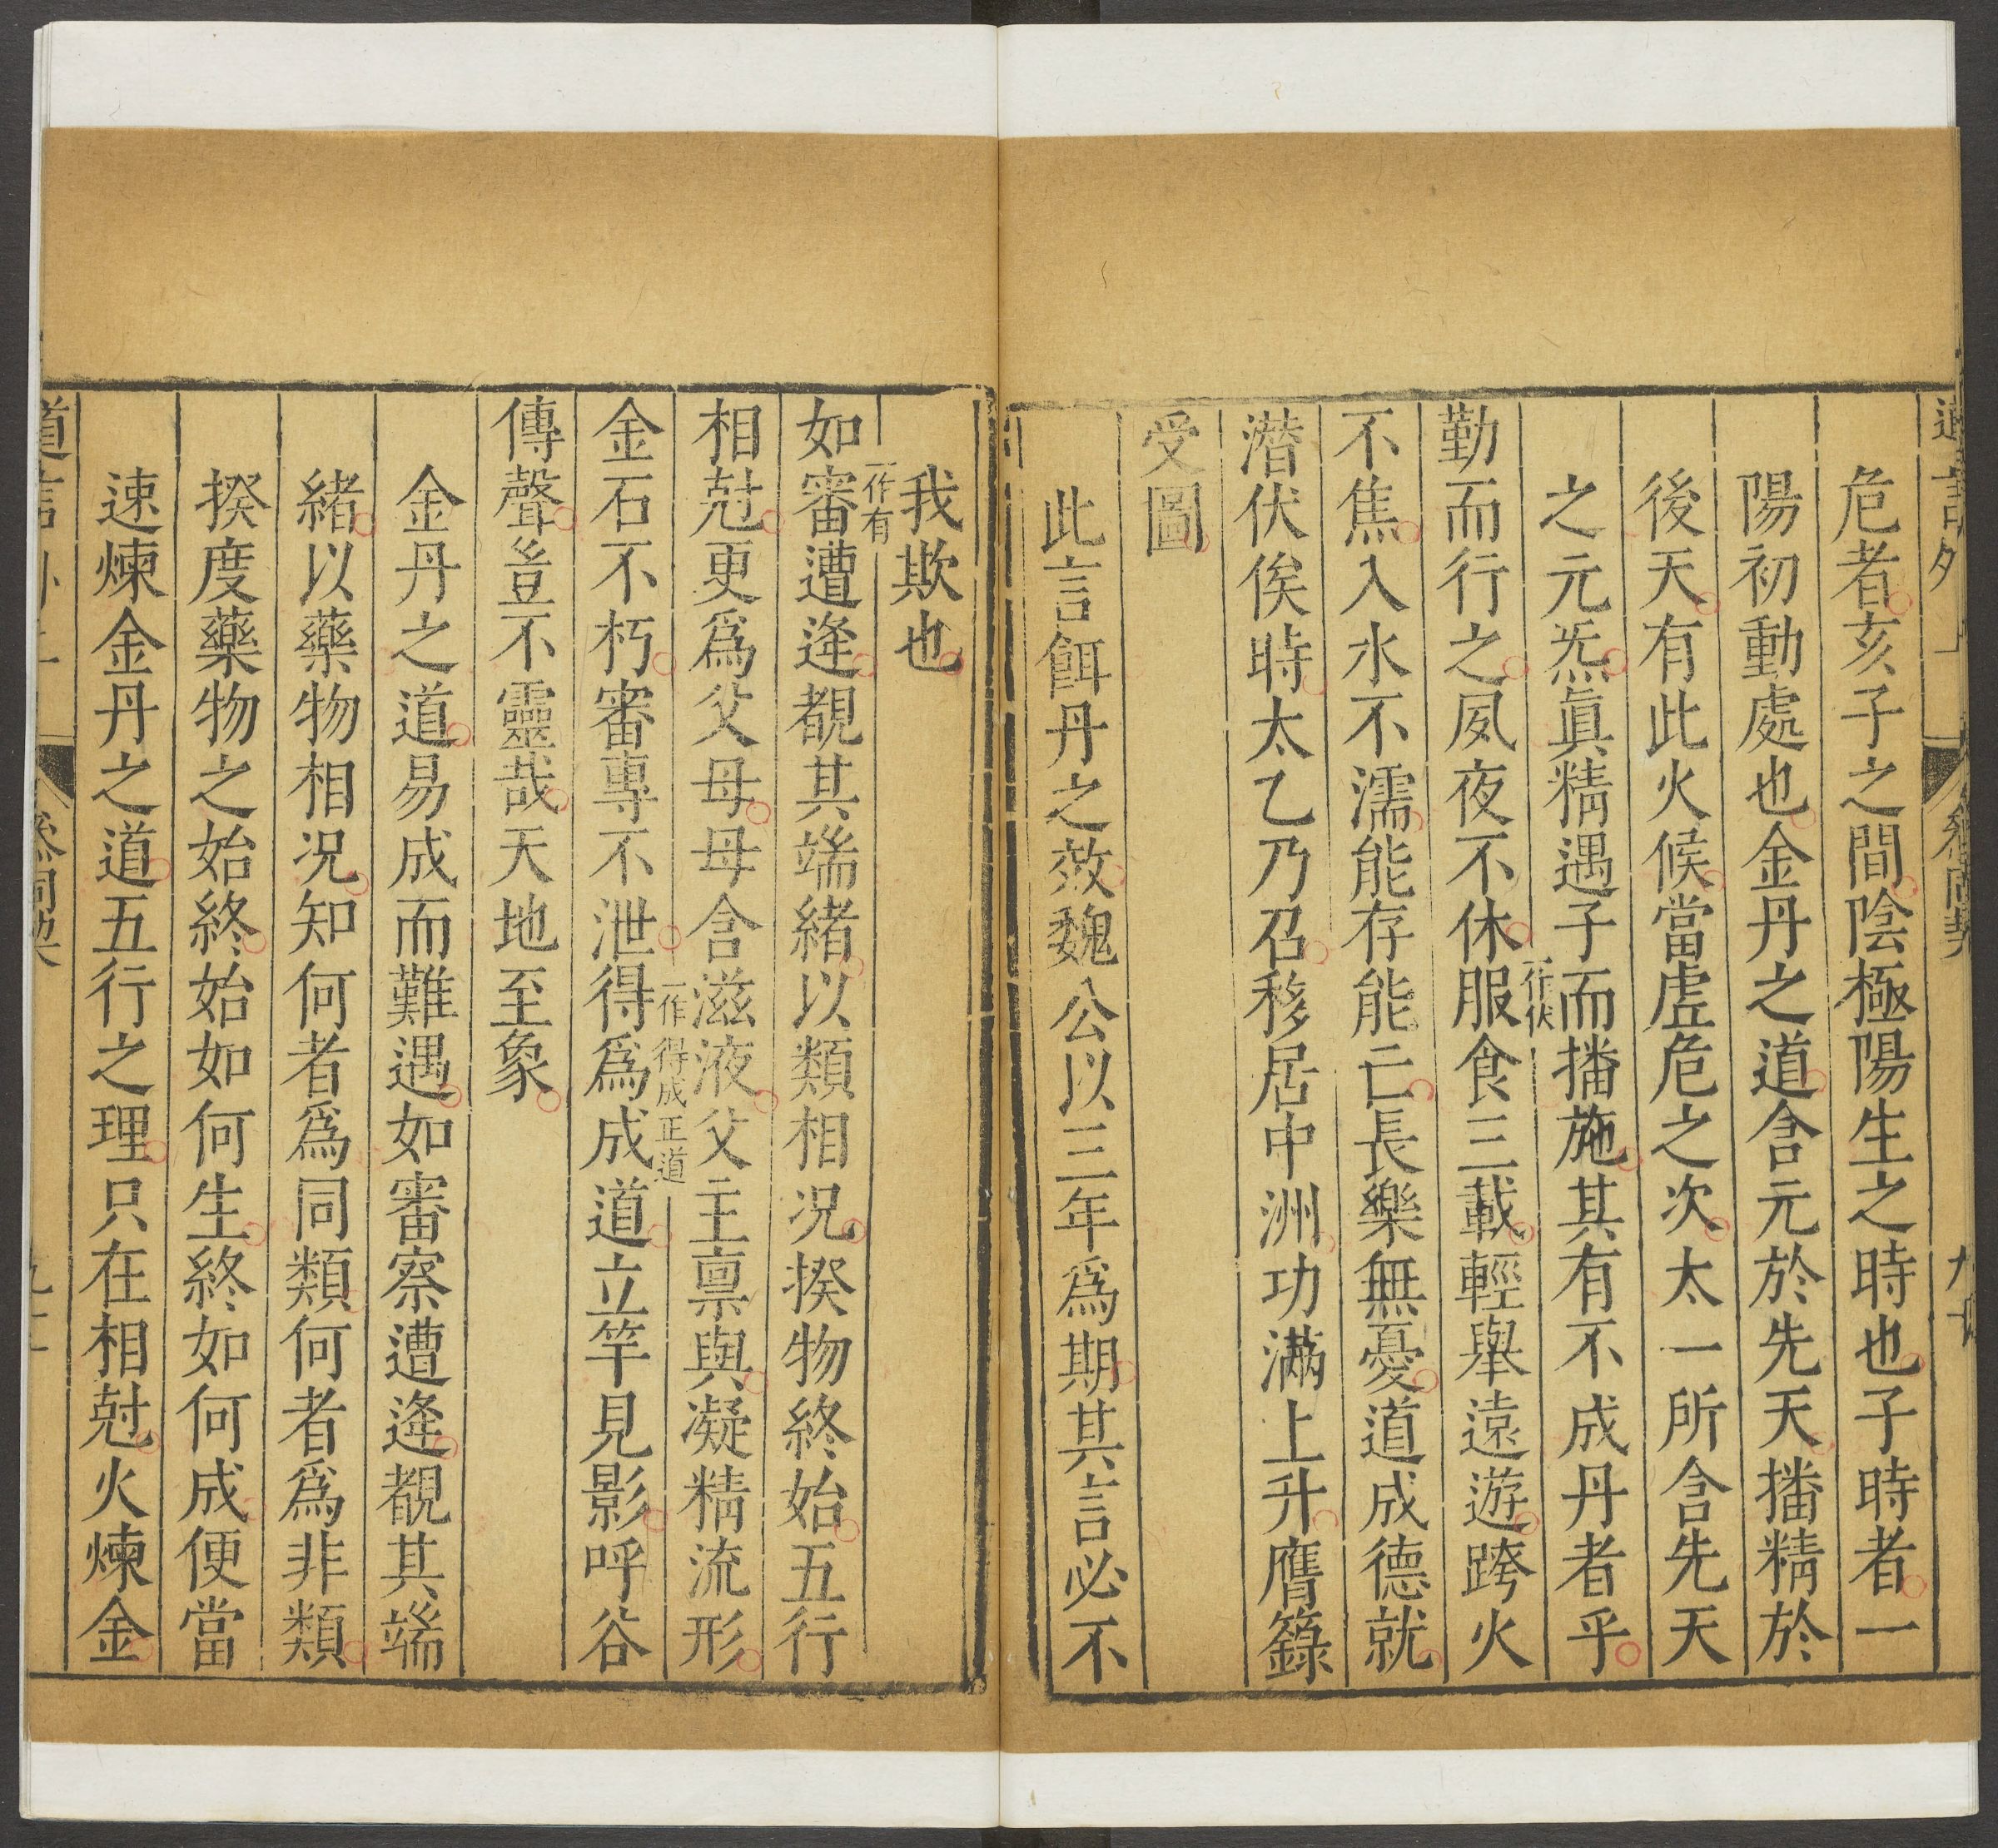 危者亥子之間陰極陽生之時也子時者一
陽初動處也金丹之道含元於先天播精於
後天有此火候當虛危之次太一所含先天
之元炁眞精遇子而播施其有不成丹者乎
勤而行之夙夜不休服食三載輕舉遠遊跨火
一作伏
不焦入水不濡能存能亡長樂無憂道成德就
潛伏俟時太乙乃召移居中洲功滿上升膺籙
受圖
此言餌丹之效魏公以三年爲期其言必不
我欺也
如審遭逢覩其端緒以類相況揆物終始五行
一作有
相尅更爲父母母含滋液父主稟與凝精流形
金石不朽審專不泄得爲成道立竿見影呼谷
一作得成正道
傳聲豈不靈哉天地至象
金丹之道易成而難遇如審察遭逢覩其端
緒以藥物相況知何者爲同類何者爲非類
揆度藥物之始終始如何生終如何成便當
速煉金丹之道五行之理只在相尅火煉金